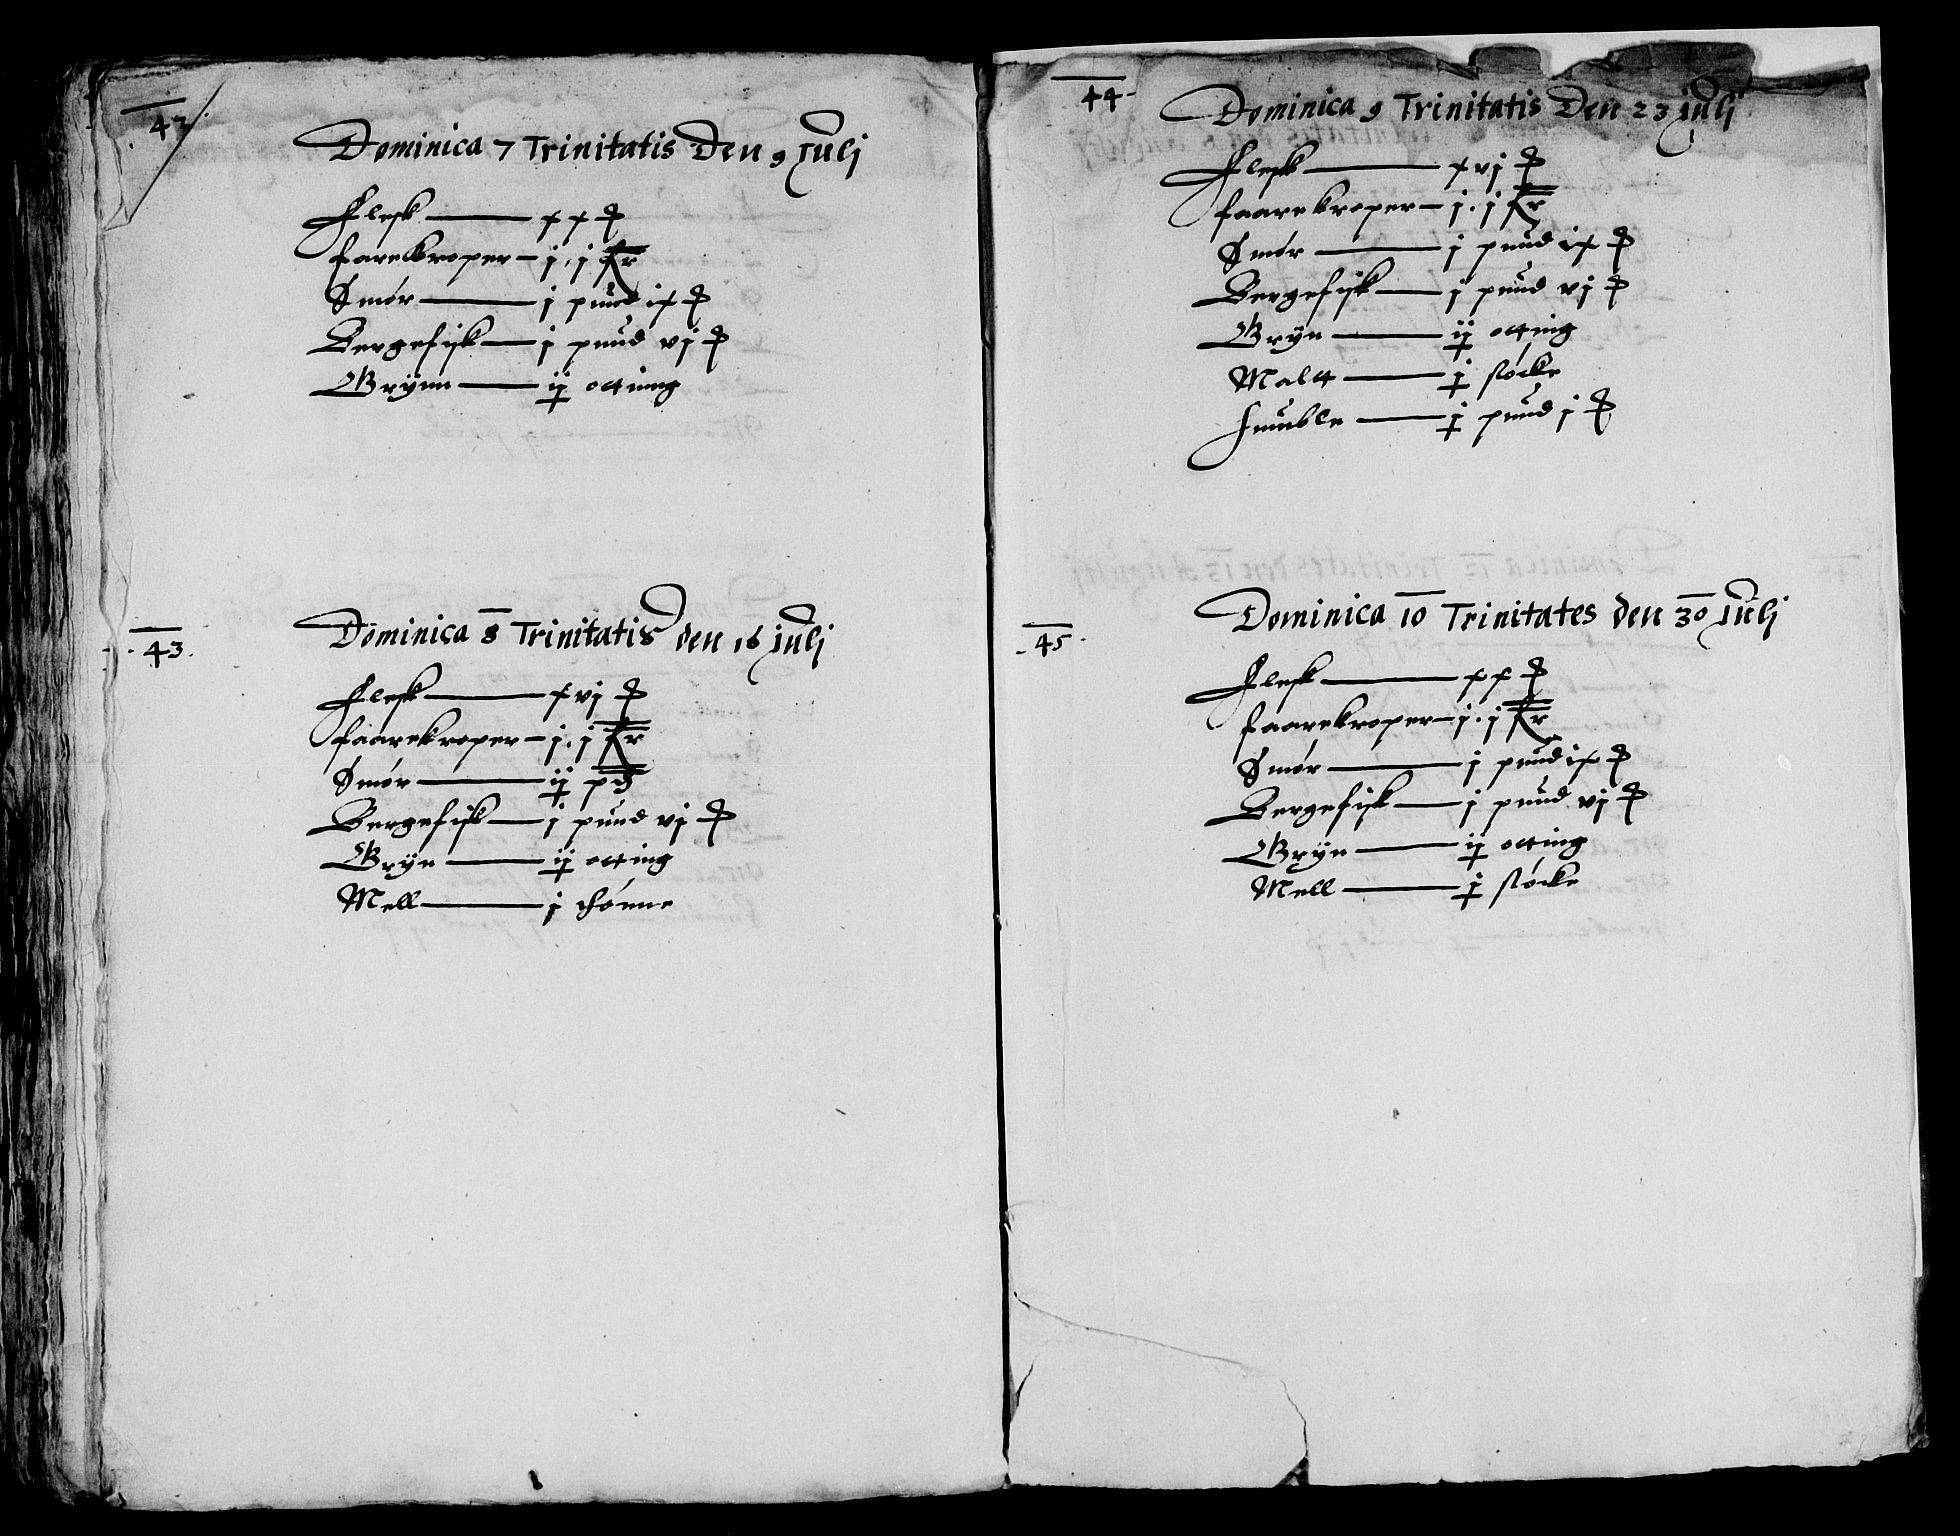 42.
Dominica 7 Trinitatis Den 9 Julj
Flesk — xx ℔
farekroper — j. j fr
Smør — j pund ix ℔
Bergefisk — j pund vj ℔
Grÿnn — ij otting
43.
Dominica 8 Trinitatis den 16 julj
Flesk — xvj ℔
faarekroper — j. j fr
Smør — ij pd
Bergefisk — j pund vj ℔
Grÿn — ij otting
Mell — j thønne
44
Dominica 9 Trinitatis Den 23 julj
Flesk — xvj ℔
faarekroper — j. j fr
Smør — j pund ix ℔
Bergefisk — j pund vj ℔
Grÿn — ij otting
Maltt — j støcke
humble — j pund j ℔
45
Dominica 10 Trinitates den 30 Julj
Flesk — xx ℔
faarekroper — j. j fr
Smør — j pund ix ℔
Bergefisk — j pund vj ℔
Grÿn — ij otting
Mell — j støcke